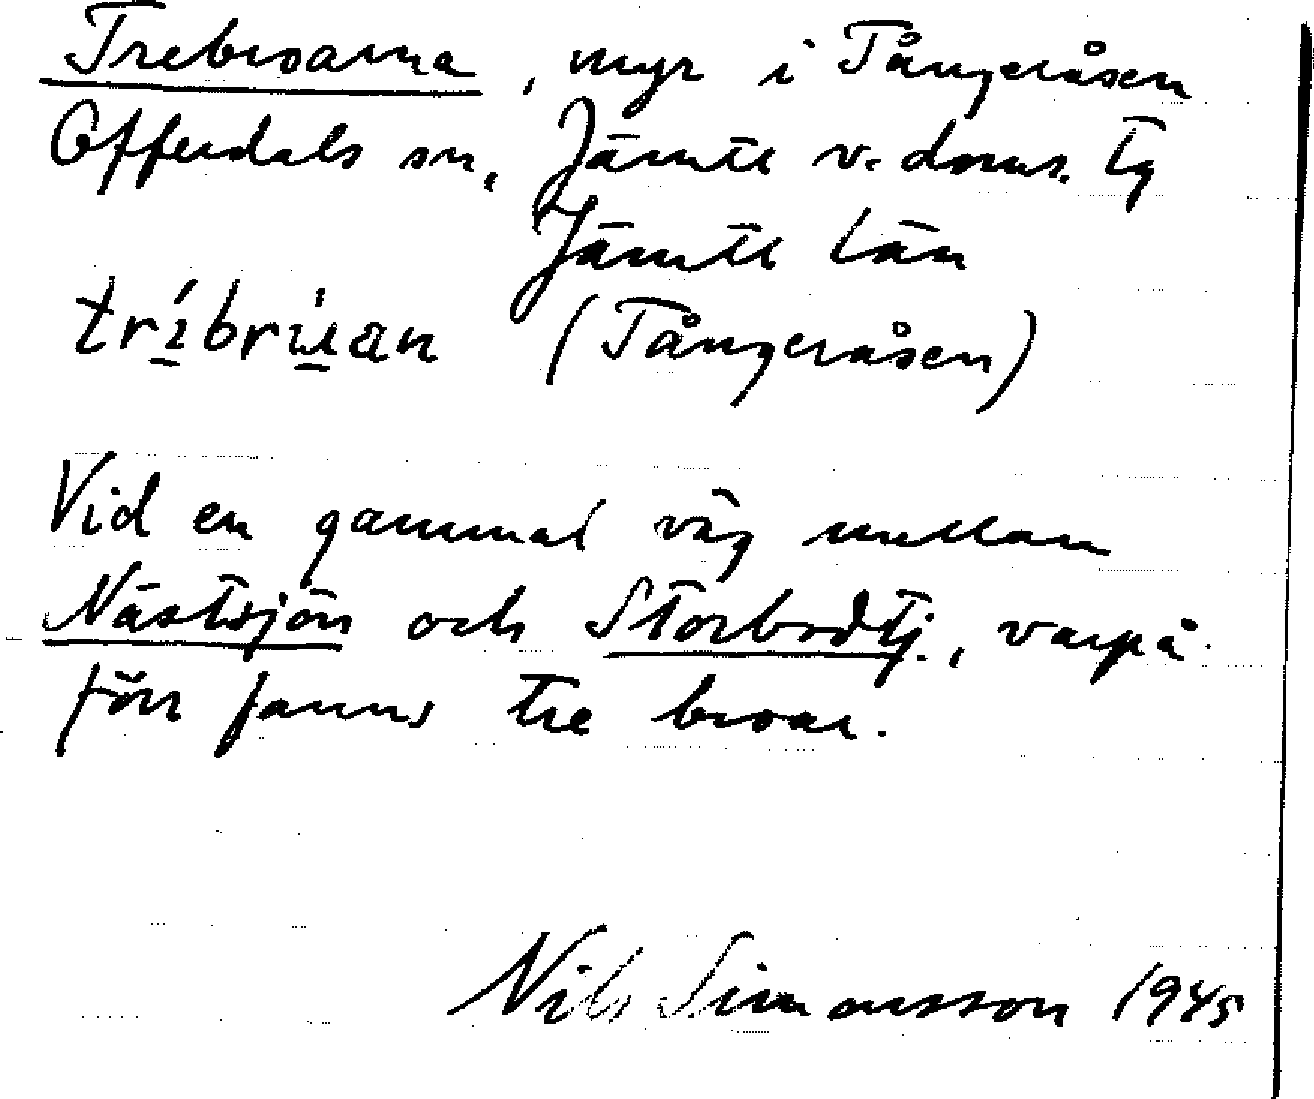 Trebroarna, myr i Tångeråsen
Offerdals sn, Jämtl v. doms. tg
Jämtl län
tríbrùan (Tångeråsen)
Vid en gammal väg mellan
Nästsjön och Storbodtj., varpå
förr fanns tre broar.
Nils Simonsson 1945